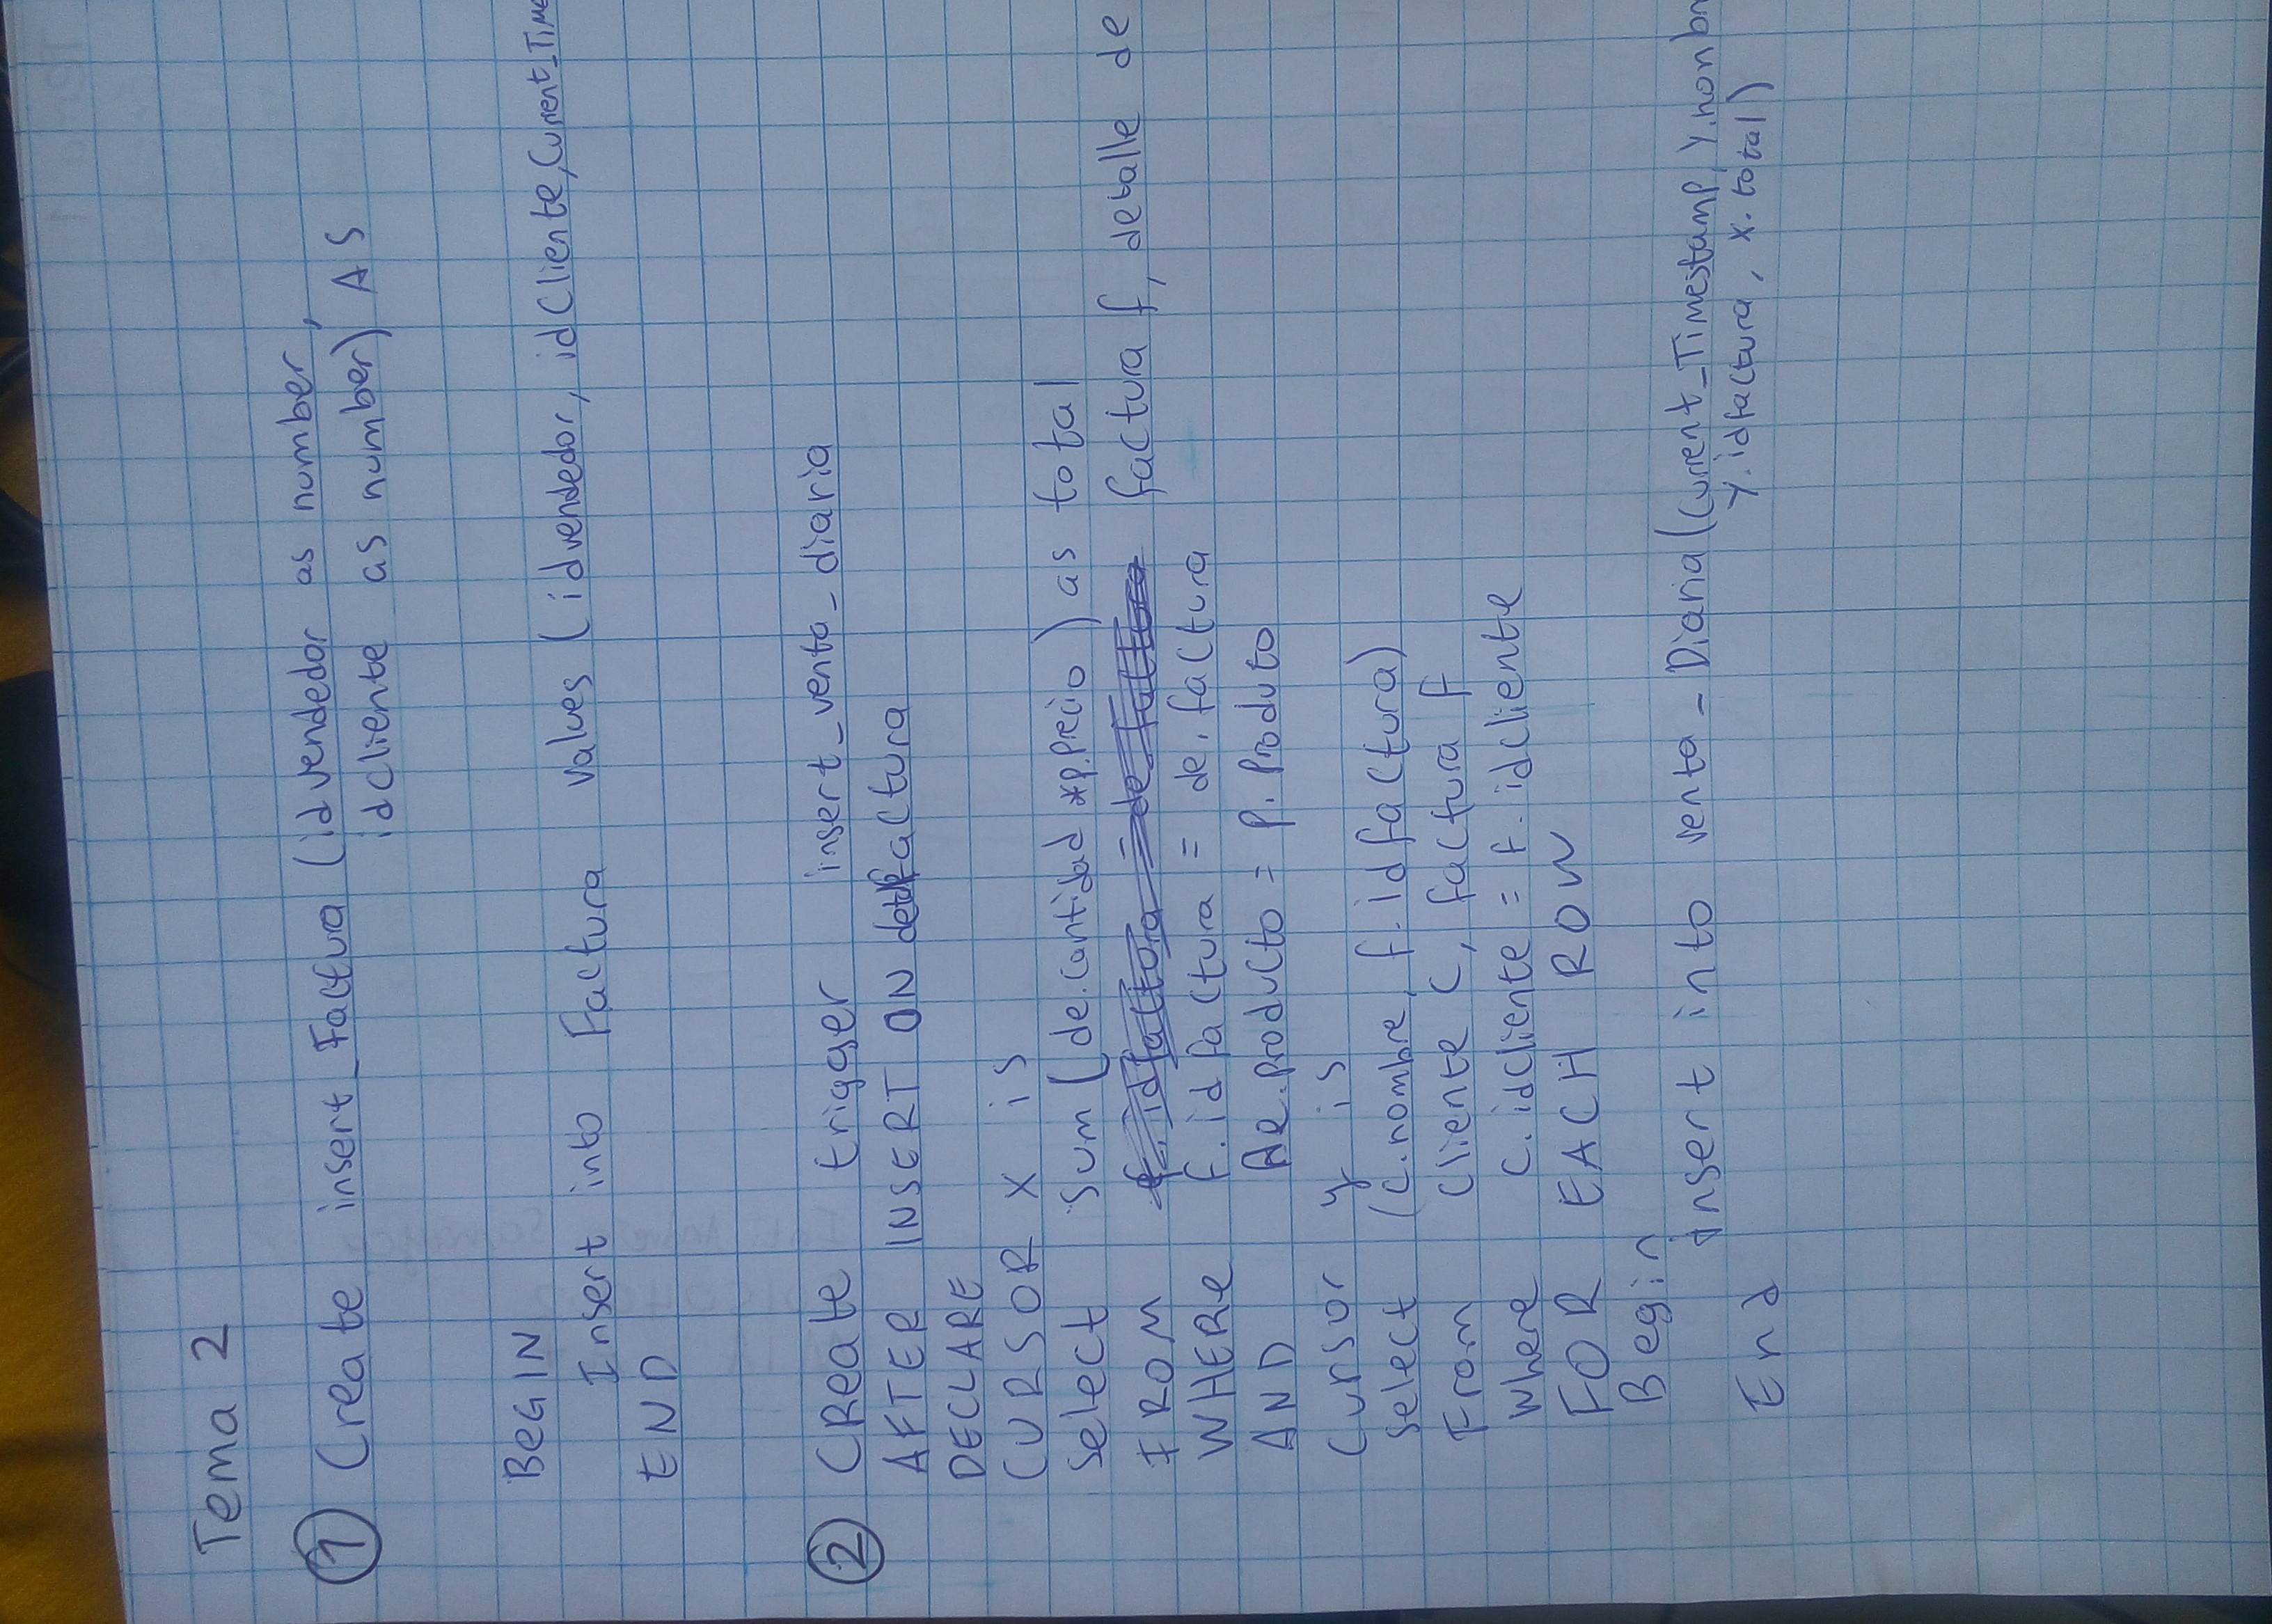 Tema 2
① Create insert_Factura (idvendedor as number,
idcliente as number) AS
BEGIN
Insert into Factura values (idvendedor, idCliente, Current_Time
END
② CReate trigger insert_venta_diaria
AFTER INSERT ON detfactura
DECLARE
CURSOR x is
select sum (de.cantidad *p.precio) as total
FROM factura f, detalle de
WHERE f.idfactura = de.factura
AND de.producto = p.Produto
Cursor y is
select (c.nombre, f.idfactura)
From Cliente C, factura F
Where C.idcliente = f.idcliente
FOR EACH ROW
Begin
Insert into venta-Diaria (Current_Timestamp, Y.nombr
Y.idfactura, x.total)
End